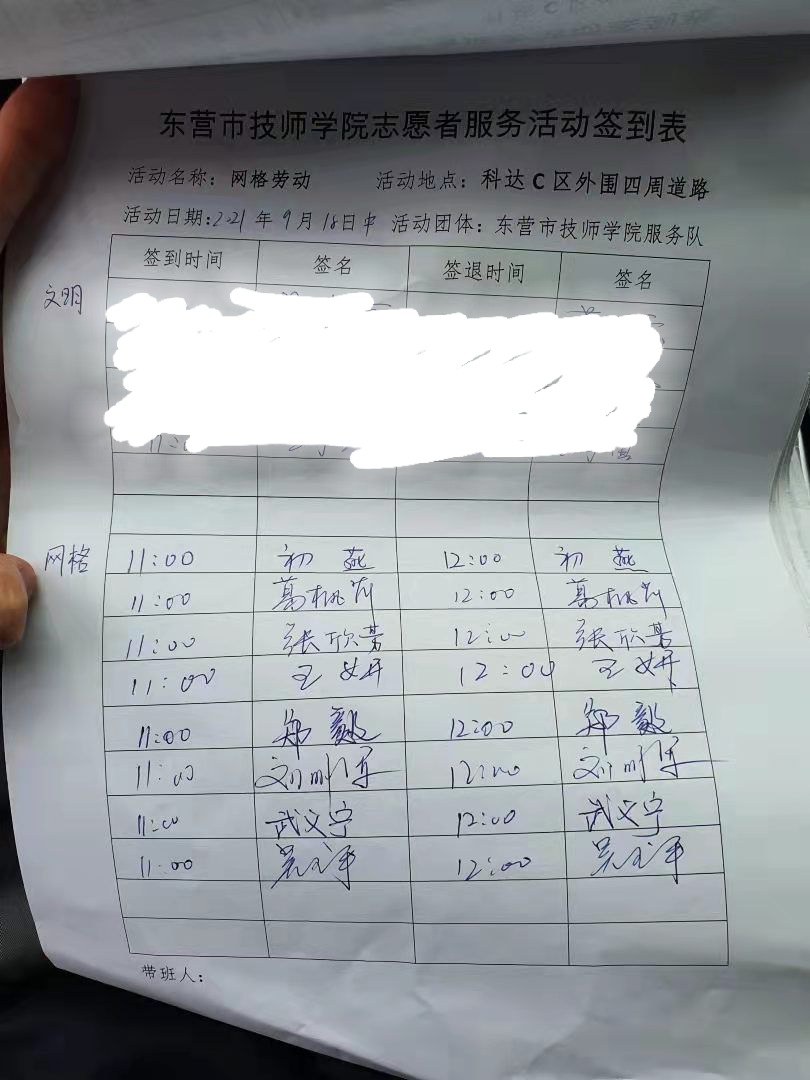 东营市技师学院志愿者服务活动签到表
活动名称：网格劳动 活动地点：科达C区外围四周道路
活动日期:2021年9月18日中 活动团体：东营市技师学院服务队
签到时间 签名 签退时间 签名
文明
网格 11:00 初燕 12:00 初燕
11:00 葛 12:00 葛
11:00 张欣 12:00 张欣
11:00 王妍 12:00 王妍
11:00 郑毅 12:00 郑毅
11:00 刘 12:00 刘
11:00 武文宁 12:00 武文宁
11:00 吴 12:00 吴
带班人：